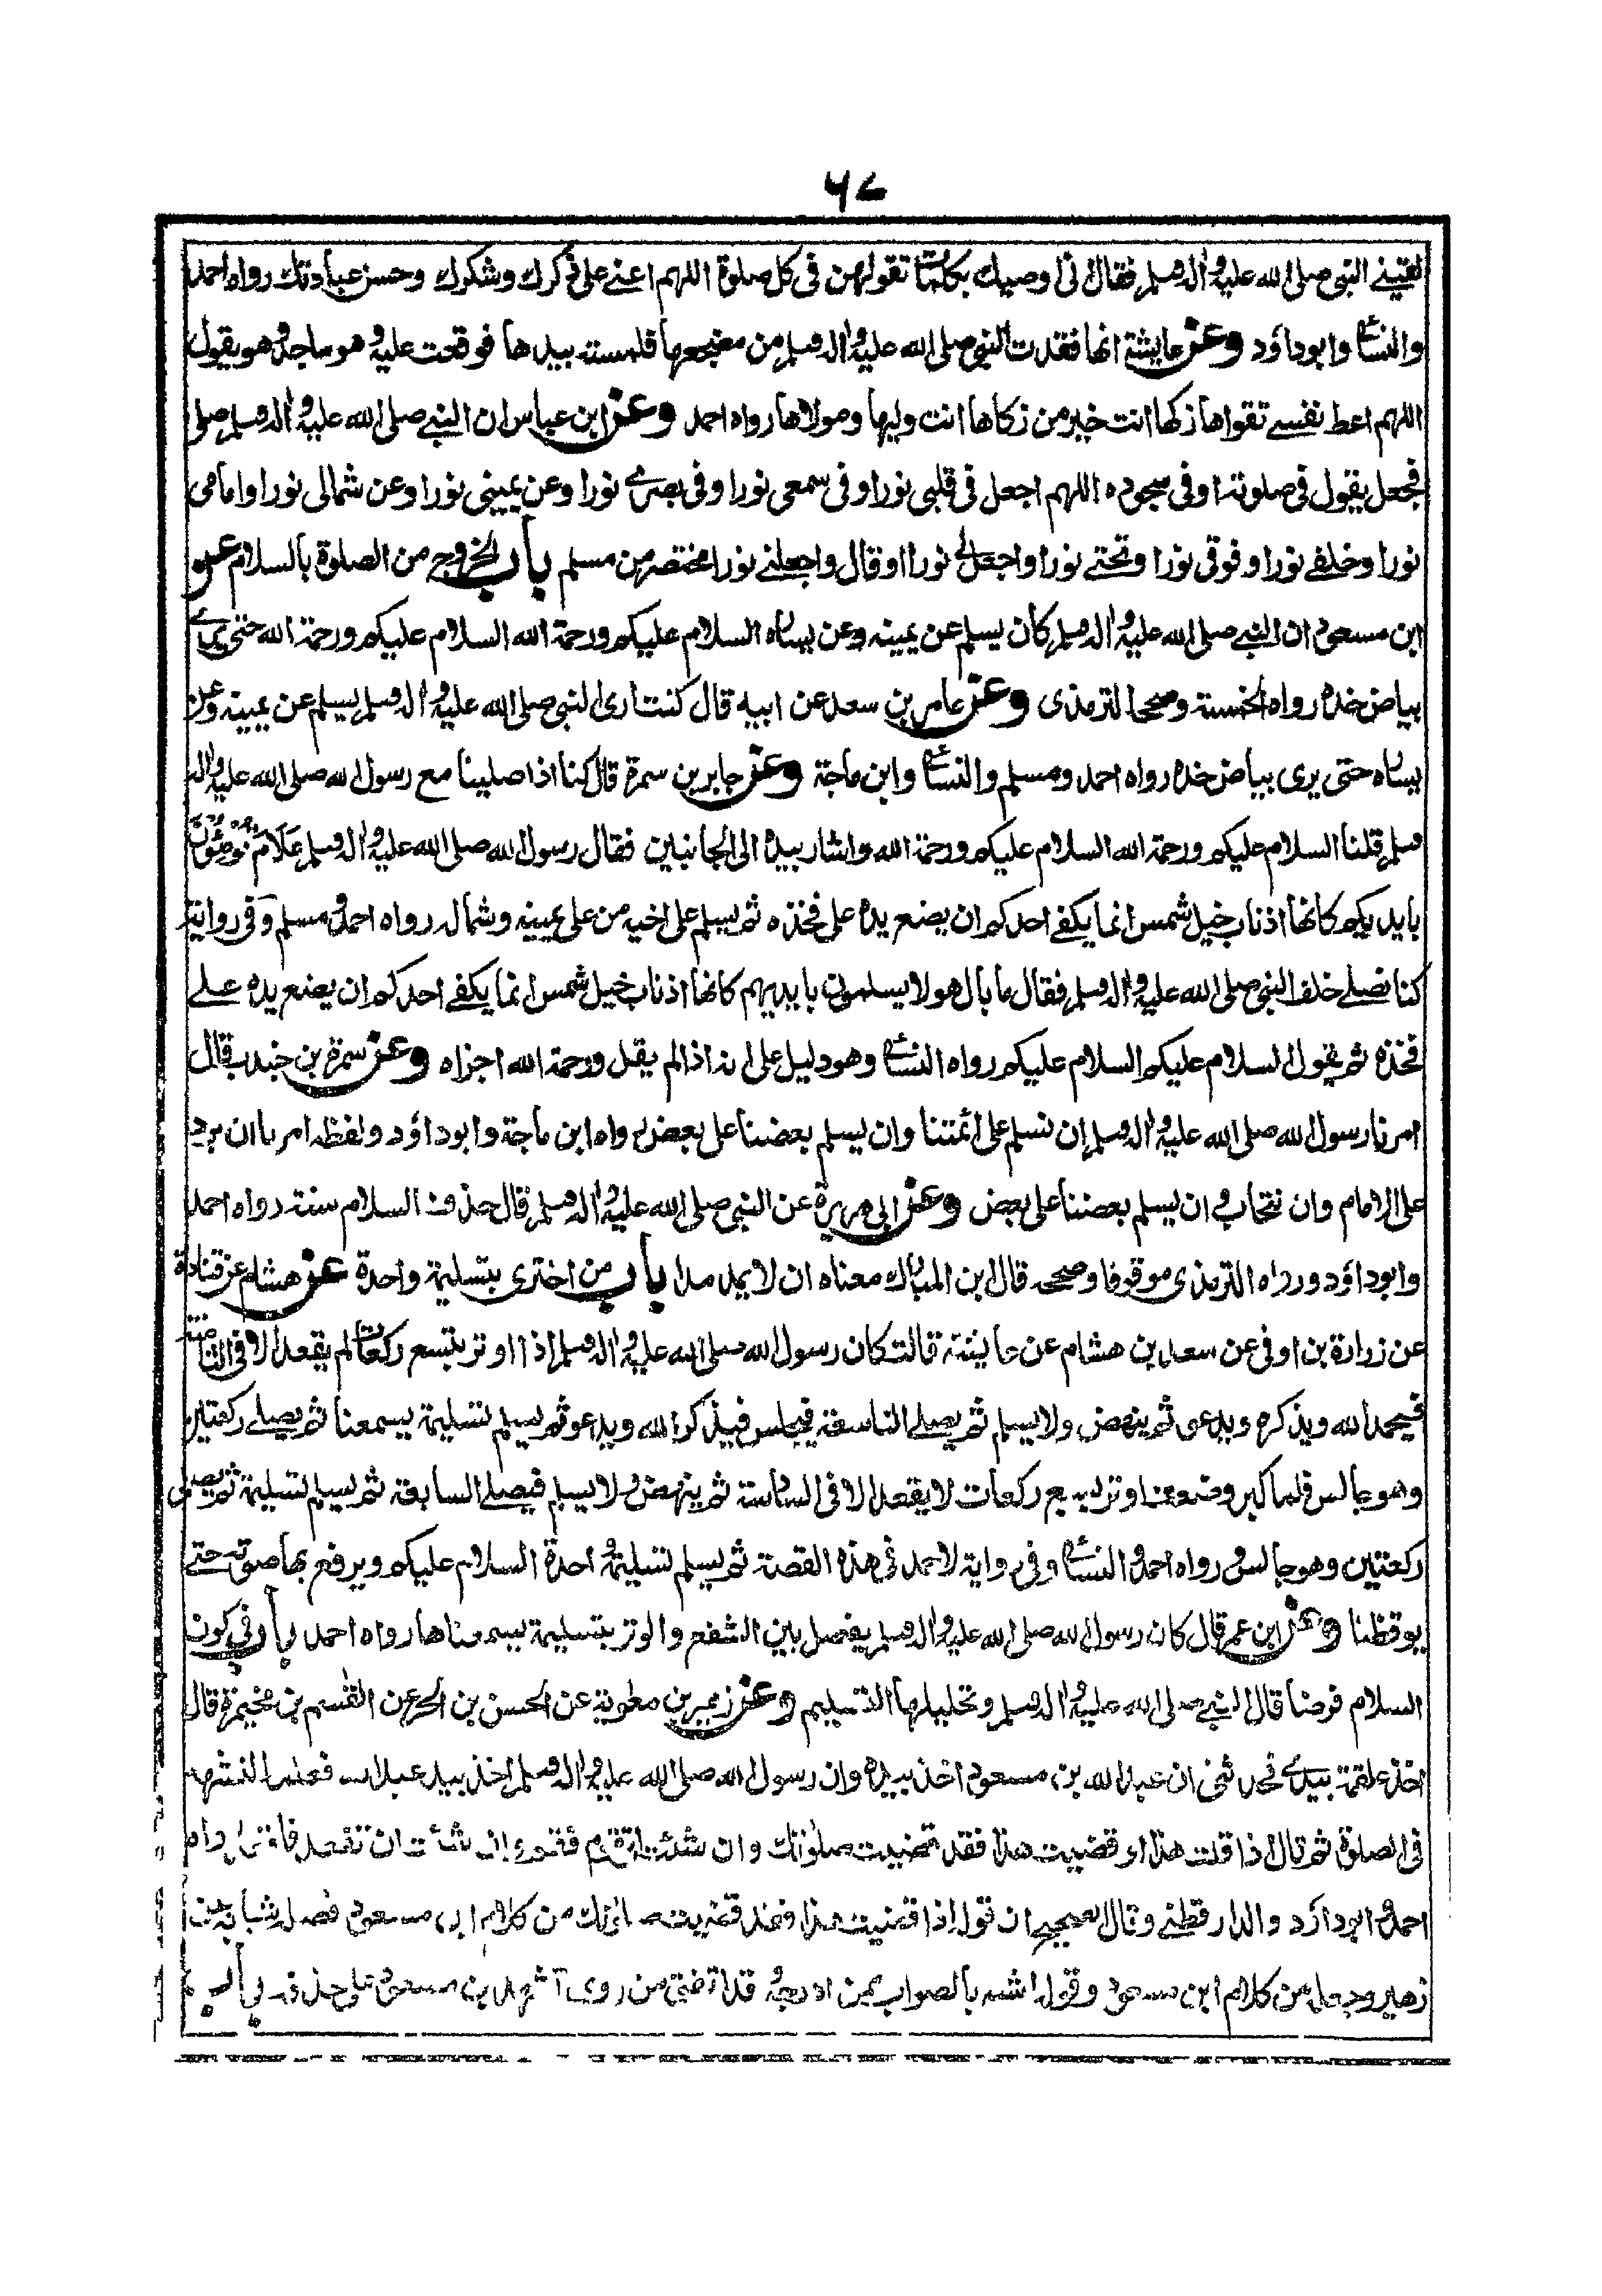 ٦٧
لقيني النبي صلى الله عليه واله وسلم فقال اني اوصيك بكلمات تقولهن في كل صلوة اللهم اعني على ذكرك وشكرك وحسن عبادتك رواه احمد
والنسائي وابوداؤد وعن عايشة انها فقدت النبي صلى الله عليه واله وسلم من مضجعها فلمسته بيدها فوقعت عليه وهو ساجد وهو يقول
اللهم اعط نفسي تقواها زكها انت خير من زكاها انت وليها ومولاها رواه احمد وعن ابن عباس ان النبي صلى الله عليه واله وسلم صلى
فجعل يقول في صلوته او في سجوده اللهم اجعل في قلبي نورا وفي سمعي نورا وفي بصري نورا وعن يميني نورا وعن شمالي نورا وامامي
نورا وخلفي نورا وفوقي نورا وتحتي نورا واجعل لي نورا او قال واجعلني نورا مختصر من مسلم باب الخروج من الصلوة بالسلام عن
ابن مسعود ان النبي صلى الله عليه واله وسلم كان يسلم عن يمينه وعن يساره السلام عليكم ورحمة الله السلام عليكم ورحمة الله حتى يرى
بياض خده رواه الخمسة وصححه الترمذي وعن عامر بن سعد عن ابيه قال كنت ارى النبي صلى الله عليه واله وسلم يسلم عن يمينه وعن
يساره حتى يرى بياض خده رواه احمد ومسلم والنسائي وابن ماجة وعن جابر بن سمرة قال كنا اذا صلينا مع رسول الله صلى الله عليه واله
وسلم قلنا السلام عليكم ورحمة الله السلام عليكم ورحمة الله واشار بيده الى الجانبين فقال رسول الله صلى الله عليه واله وسلم علام تومئون
بايديكم كانها اذناب خيل شمس انما يكفي احدكم ان يضع يده على فخذه ثم يسلم على اخيه من على يمينه وشماله رواه احمد ومسلم وفي رواية
كنا نصلي خلف النبي صلى الله عليه واله وسلم فقال ما بال هولا يسلمون بايديهم كانها اذناب خيل شمس انما يكفي احدكم ان يضع يده على
فخذه ثم يقول السلام عليكم السلام عليكم رواه النسائي وهو دليل على انه اذا لم يقل ورحمة الله اجزاه وعن سمرة بن جندب قال
امرنا رسول الله صلى الله عليه واله وسلم ان نسلم على ائمتنا وان يسلم بعضنا على بعض رواه ابن ماجة وابوداؤد ولفظه امرنا ان نرد
على الامام وان نتحاب وان يسلم بعضنا على بعض وعن ابي هريرة عن النبي صلى الله عليه واله وسلم قال حذف السلام سنة رواه احمد
وابوداؤد ورواه الترمذي موقوفا وصححه قال ابن المبارك معناه ان لا يمد مدا باب من اجتزى بتسليمة واحدة عن هشام عن قتادة
عن زرارة بن اوفى عن سعد بن هشام عن عايشة قالت كان رسول الله صلى الله عليه واله وسلم اذا اوتر بتسع ركعات لم يقعد الا في الثامنة
فيحمد الله ويذكره ويدعو ثم ينهض ولا يسلم ثم يصلي التاسعة فيجلس فيذكر الله ويدعو ثم يسلم تسليمة يسمعنا ثم يصلي ركعتين
وهو جالس فلما كبر وضعف اوتر بسبع ركعات لا يقعد الا في السادسة ثم ينهض ولا يسلم فيصلي السابعة ثم يسلم تسليمة ثم يصلي
ركعتين وهو جالس رواه احمد والنسائي وفي رواية لاحمد في هذه القصة ثم يسلم تسليمة واحدة السلام عليكم ويرفع بها صوته حتى
يوقظنا وعن ابن عمر قال كان رسول الله صلى الله عليه واله وسلم يفصل بين الشفع والوتر بتسليمة يسمعناها رواه احمد باب في كون
السلام فرضا قال النبي صلى الله عليه واله وسلم وتحليلها التسليم وعن زهير بن معوية عن الحسن بن الحر عن القسم بن مخيمرة قال
اخذ علقمة بيدي فحدثني ان عبد الله بن مسعود اخذ بيده وان رسول الله صلى الله عليه واله وسلم اخذ بيد عبد الله فعلمه التشهد
في الصلوة ثم قال اذا قلت هذا او قضيت هذا فقد قضيت صلوتك وان شئت ان تقوم فقم وان شئت ان تقعد فاقعد رواه
احمد وابوداؤد والدارقطني وقال الصحيح ان قوله اذا قضيت هذا فقد قضيت صلوتك من كلام ابن مسعود فصله شبابة عن
زهير وجعله من كلام ابن مسعود وقوله اشبه بالصواب ممن ادرجه وقد اتفق من روى تشهد ابن مسعود على حذفه باب